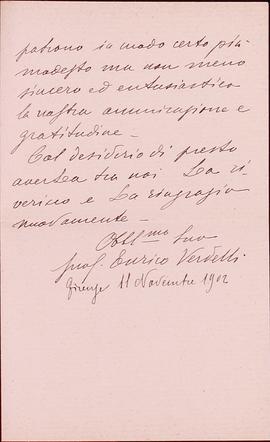 patrono in modo certo più
modesto ma non meno
sincero ed entusiastico
la nostra ammirazione e
gratitudine –
Col desiderio di presto
averLa tra noi La ri
verisco e La ringrazio
nuovamente –
Obbl.mo Suo
Prof. Enrico Verdelli
Firenze 11 Novembre 1902